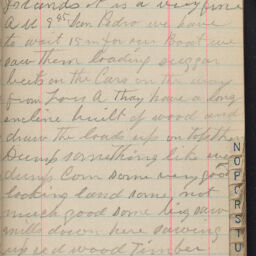 it is a very fine
A M 9 45 San Pedro we have
to wait 15 m for our Boat we
saw them loading suggar
beets on the Cars on the way
from Loss A thay have a long
encline built of wood and
draw the loads up on top then
Dump something like we
dump Corn some very good
looking land some not
much good some big saw
mills down here sawing
up red wood Timber
N
O
P
Q
R
S
T
U